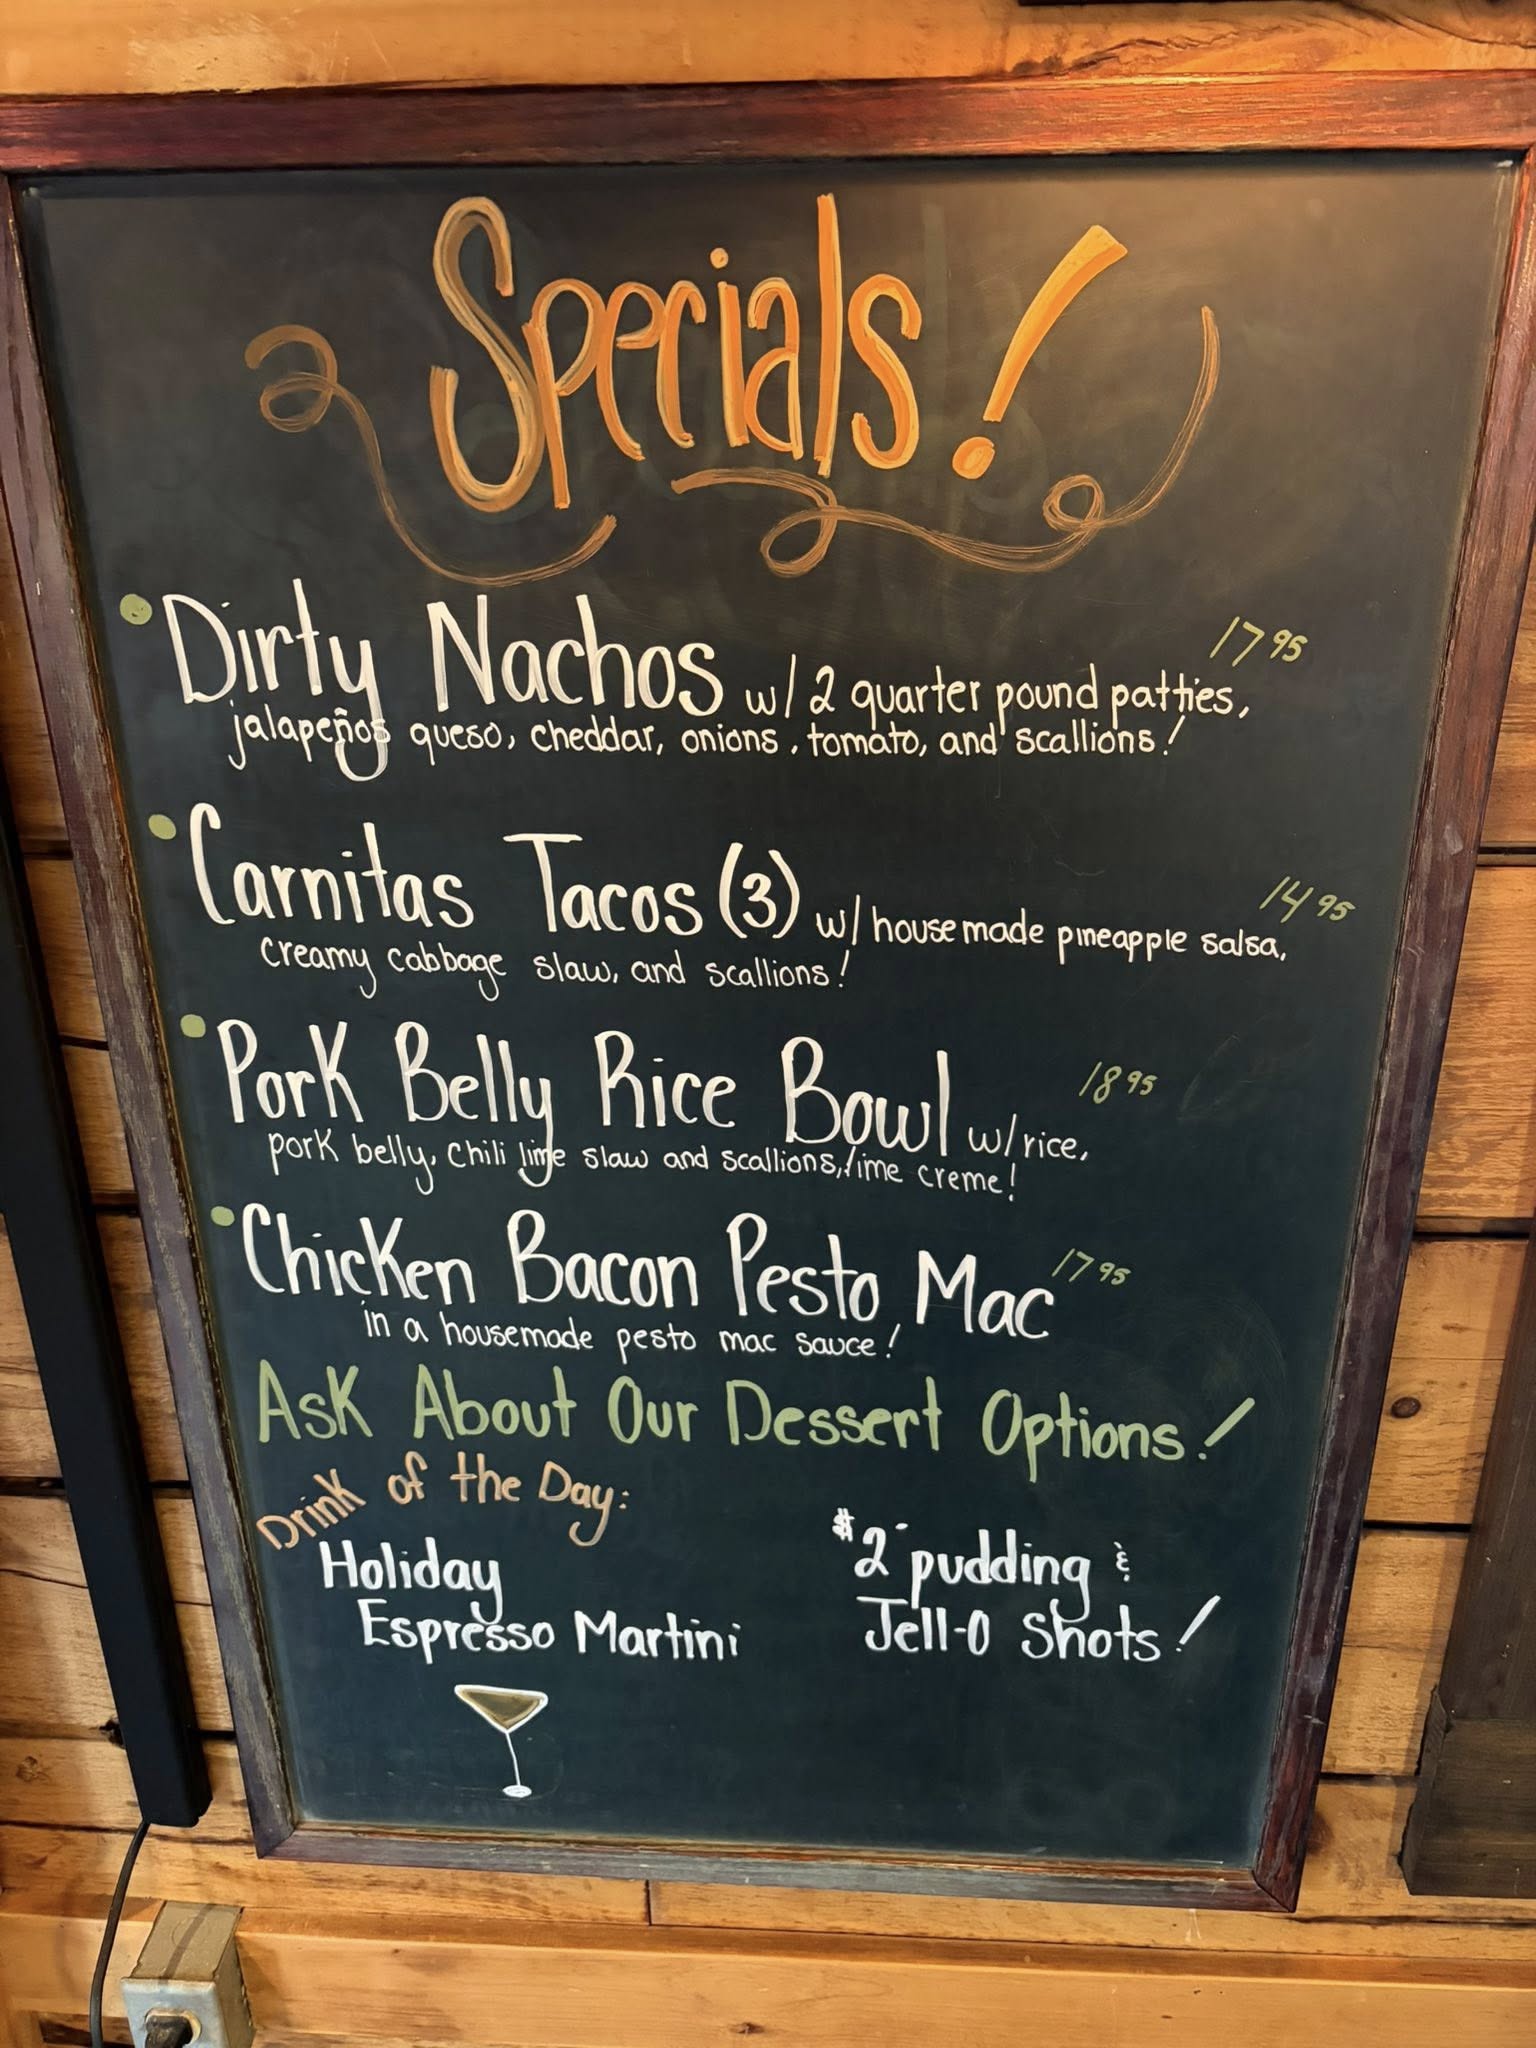 Specials!
Dirty Nachos w/ 2 quarter pound patties, 17 95
jalapeños queso, cheddar, onions, tomato, and scallions!
Carnitas Tacos (3) w/ housemade pineapple salsa, 14 95
creamy cabbage slaw, and scallions!
Pork Belly Rice Bowl w/ rice, 18 95
pork belly, chili lime slaw and scallions, lime creme!
Chicken Bacon Pesto Mac 17 95
in a housemade pesto mac sauce!
Ask About Our Dessert Options!
Drink of the Day:
Holiday
Espresso Martini
$2 pudding &
Jell-O Shots!